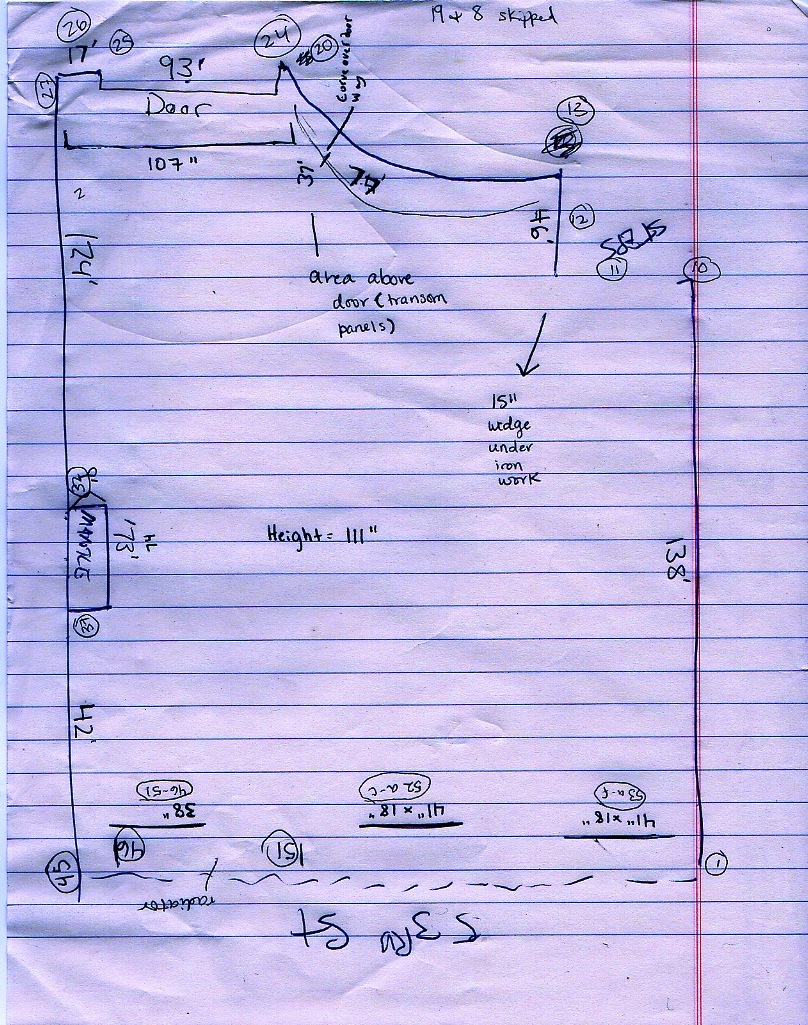 19 & 8 skipped
26
17'
25
93'
24
20
Curve over door
way
27
Door
13
107"
37'
77'
46'
12
11
10
2
124'
area above
door (transom
panels)
15"
wedge
under
iron
work
8"
33
MANTLE
74
73'
Height = 111"
138'
42'
46-51
38"
52 a-c
41" x 18"
53 a-f
41" x 18"
46
51
45
1
radiator
53rd St